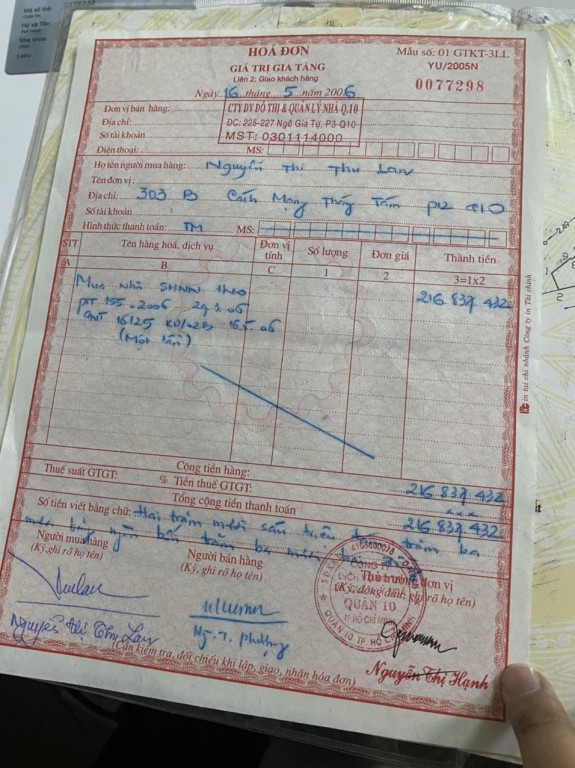 HOÁ ĐƠN
GIÁ TRỊ GIA TĂNG
Liên 2: Giao khách hàng
Ngày 16 tháng 5 năm 2006
Mẫu số: 01 GTKT-3LL
YU/2005N
0077298
Đơn vị bán hàng: CTY DV ĐÔ THỊ & QUẢN LÝ NHÀ Q.10
Địa chỉ: ĐC: 225-227 Ngô Gia Tự, P3-Q10
Số tài khoản MST: 0301114000
Điện thoại: MS:
Họ tên người mua hàng: Nguyễn Thị Thu Lan
Tên đơn vị:
Địa chỉ: 303 B Cách Mạng Tháng Tám P12 Q10
Số tài khoản
Hình thức thanh toán: TM MS:
STT Tên hàng hoá, dịch vụ Đơn vị tính Số lượng Đơn giá Thành tiền
A B C 1 2 3=1x2
Mua nhà SHNN theo 216.837.432
155-2006
16125 16.5.06
(Một lần)
Cộng tiền hàng: 216.837.432
Thuế suất GTGT: % Tiền thuế GTGT:
Tổng cộng tiền thanh toán 216.837.432
Số tiền viết bằng chữ: Hai trăm mười sáu triệu tám trăm ba
mươi bảy ngàn bốn trăm ba mươi hai
Người mua hàng
(Ký, ghi rõ họ tên)
Người bán hàng
(Ký, ghi rõ họ tên)
Thủ trưởng đơn vị
(Ký, đóng dấu, ghi rõ họ tên)
QUẬN 10
TP HỒ CHÍ MINH
Ng. T. Phượng
Nguyễn Thị Thu Lan
Nguyễn Thị Hạnh
(Cần kiểm tra, đối chiếu khi lập, giao, nhận hóa đơn)
in tại chi nhánh Công ty in Tài chính